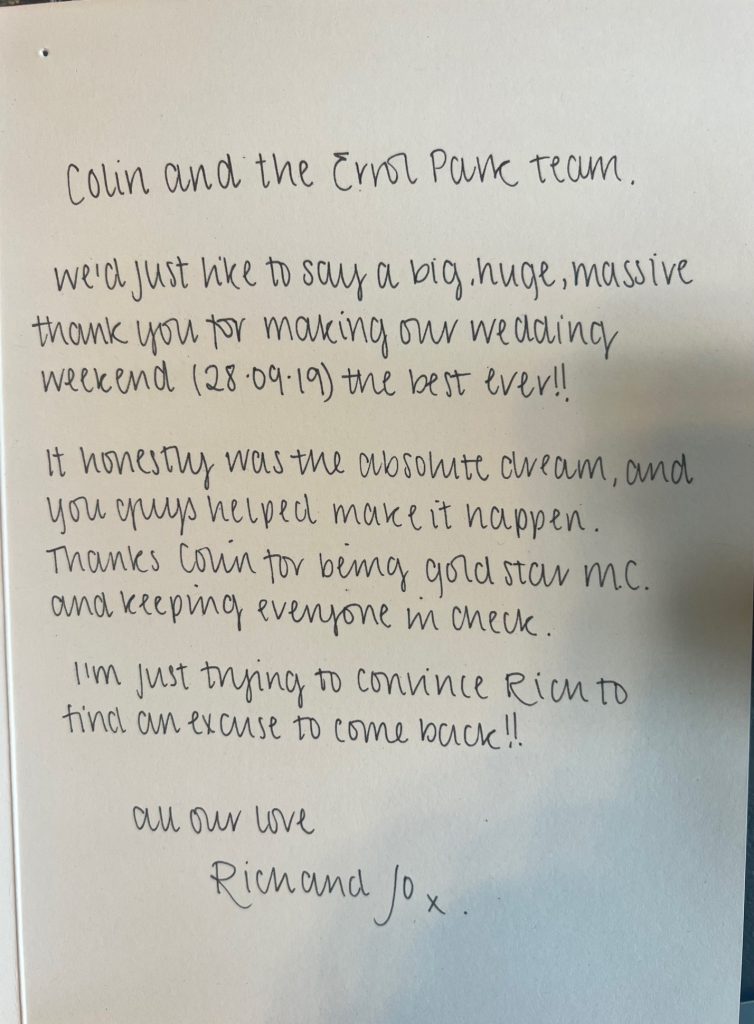 Colin and the Errol Park team.
We'd just like to say a big, huge, massive
thank you for making our wedding
weekend (28.09.19) the best ever!!
It honestly was the absolute dream, and
you guys helped make it happen.
Thanks Colin for being gold star M.C.
and keeping everyone in check.
I'm just trying to convince Rich to
find an excuse to come back!!
all our love
Rich and Jo x.